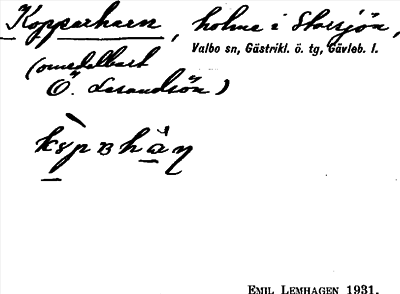 Kopparharn, holme i Storsjön,
Valbo sn, Gästrikl. ö. tg, Gävleb. l.
(omedelbart
Ö. Lesandsön)
EMIL LEMHAGEN 1931.